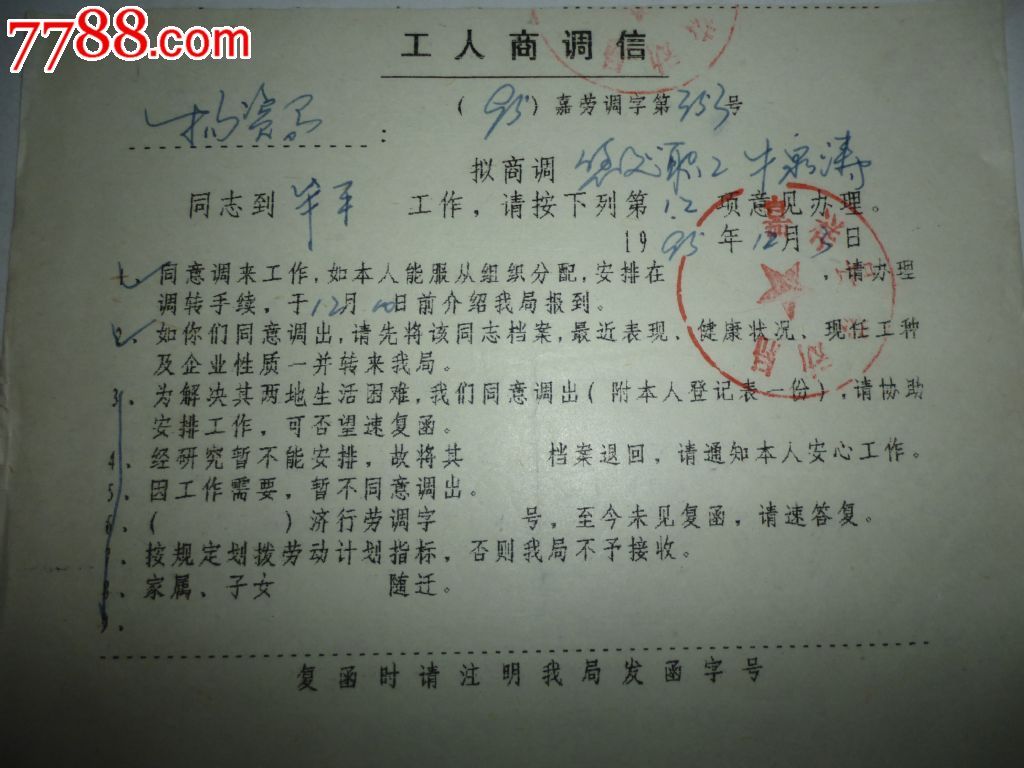 7788.com
工人商调信
物资局：
(95)嘉劳调字第353号
拟商调 职工牛泉涛
同志到 工作，请按下列第1.2项意见办理。
1995年12月5日
1、同意调来工作，如本人能服从组织分配，安排在 ，请办理
调转手续，于12月10日前介绍我局报到。
2、如你们同意调出，请先将该同志档案，最近表现、健康状况、现任工种
及企业性质一并转来我局。
3、为解决其两地生活困难，我们同意调出(附本人登记表一份)，请协助
安排工作，可否望速复函。
4、经研究暂不能安排，故将其 档案退回，请通知本人安心工作。
5、因工作需要，暂不同意调出。
6、( )济行劳调字 号，至今未见复函，请速答复。
7、按规定划拨劳动计划指标，否则我局不予接收。
8、家属、子女 随迁。
9.
复函时请注明我局发函字号